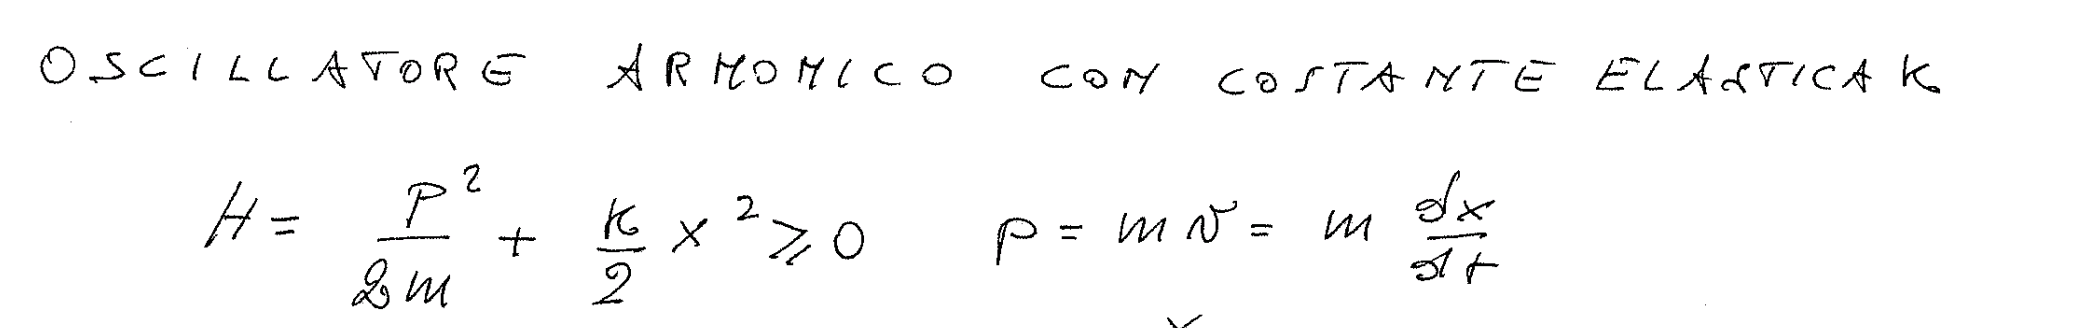 OSCILLATORE ARMONICO CON COSTANTE ELASTICA K
H = P²/2m + K/2 x² ⩾ 0 p = mv = m dx/dt